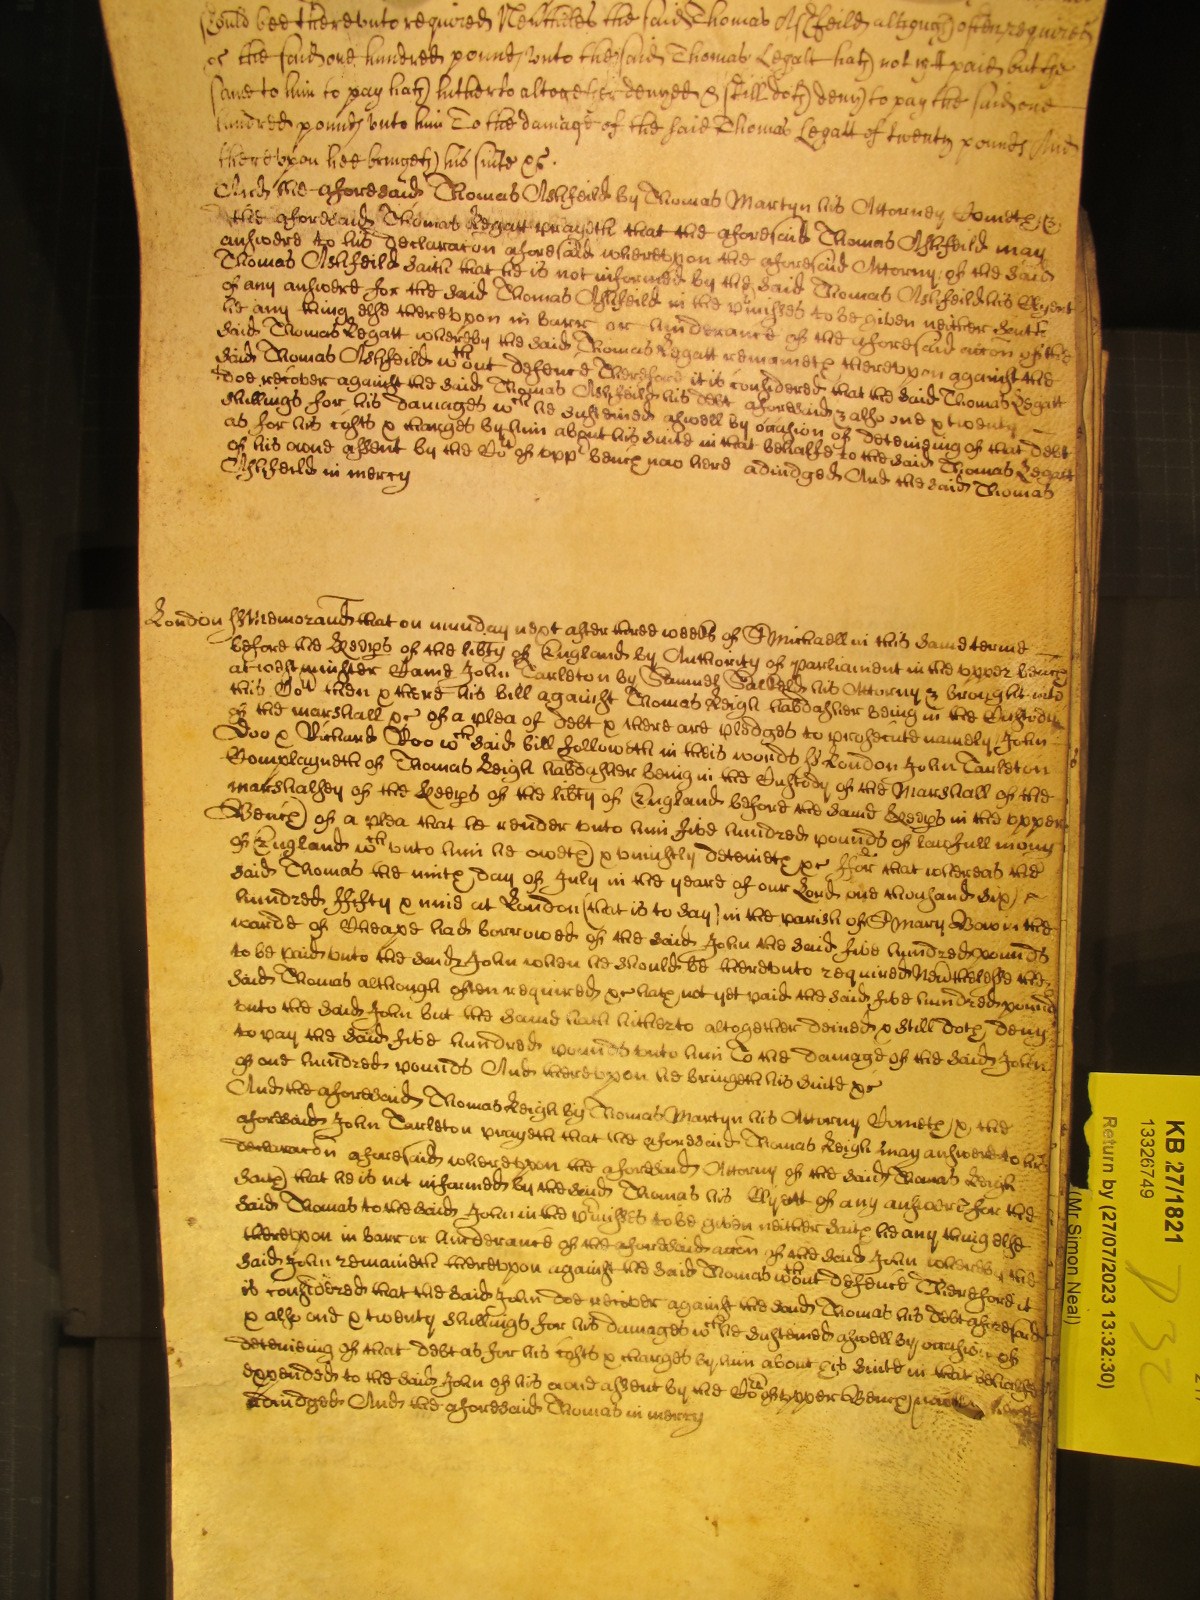 should bee thereunto required Neverthelesse the said Thomas Ashfeild although often required
&c the said one hundred pounds unto the said Thomas Legatt hath not yett paid but the
same to him to pay hath hitherto altogether denyed & still doth deny to pay the said one
hundred pounds unto him To the damage of the said Thomas Legatt of twenty pounds And
thereupon hee bringeth his suite &c.
And the aforesaid Thomas Ashfeild by Thomas Martyn his Attorney Cometh &
the aforesaid Thomas Legatt prayeth that the aforesaid Thomas Ashfeild may
answere to his declaracon aforesaid whereupon the aforesaid Attorny of the said
Thomas Ashfeild saith that he is not informed by the said Thomas Ashfeild his Clyent
of any answere for the said Thomas Ashfeild in the p'misses to be given neither saith
he any thing else thereupon in barr or hinderance of the aforesaid accon of the
said Thomas Legatt whereby the said Thomas Legatt remaineth thereupon against the
said Thomas Ashfeild wthout defence Therefore it is considered that the said Thomas Legatt
doe recover against the said Thomas Ashfeild his debt aforesaid & also one & twenty
shillings for his damages wch he susteined aswell by occasion of deteineing of that debt
as for his costs & charges by him about his suite in that behalfe to the said Thomas Legatt
of his owne assent by the Cort of upp' bench now here adiudged And the said Thomas
Ashfeild in mercy
London ss Memorand that on munday next after three weeks of St Michaell in this same terme
before the Keeps of the lib'ty of England by Authority of parliament in the upper bench
at westminster Came John Tarleton by Samuel Salkeld his Attorny & brought into
this Cort then & there his bill against Thomas Leigh habdasher being in the Custody
of the marshall &c of a plea of debt & there are pledges to prosecute namely John
Doo & Richard Roo wch said bill followeth in theis words ss London John Tarleton
Complayneth of Thomas Leigh habdasher being in the Custody of the Marshall of the
marshalsey of the Keeps of the lib'ty of England before the same Keeps in the upper
Bench of a plea that he render unto him five hundred pounds of lawfull mony
of England wch unto him he oweth & uniustly deteineth &c ffor that whereas the
said Thomas the ninth day of July in the yeare of our Lord one thousand six
hundred ffifty & nine at London (that is to say) in the parish of St Mary Bow in the
warde of Cheape had borrowed of the said John the said five hundred pounds
to be paid unto the said John when he should be thereunto required Nevertheless the
said Thomas although often required &c hath not yet paid the said five hundred pounds
unto the said John but the same hath hitherto altogether denied & still doth deny
to pay the said five hundred pounds unto him To the damage of the said John
of one hundred pounds And thereupon he bringeth his suite &c
And the aforesaid Thomas Leigh by Thomas Martyn his Attorny Cometh & the
aforesaid John Tarleton prayeth that the aforesaid Thomas Leigh may answere to his
declaracon aforesaid whereupon the aforesaid Attorny of the said Thomas Leigh
saith that he is not informed by the said Thomas his Clyent of any answere for the
said Thomas to the said John in the p'misses to be given neither saith he any thing else
thereupon in barr or hinderance of the aforesaid accon of the said John whereby the
said John remaineth thereupon against the said Thomas wthout defence Therefore it
is considered that the said John doe recover against the said Thomas his debt aforesaid
& also one & twenty shillings for his damages wch he susteined aswell by occasion of
deteineing of that debt as for his costs & charges by him about his suite in that behalfe
expended to the said John of his owne assent by the Cort of upper Bench now here
adiudged And the aforesaid Thomas in mercy
KB 27/1821
13326749
Return by (27/07/2023 13:32:30)
(Mr Simon Neal)